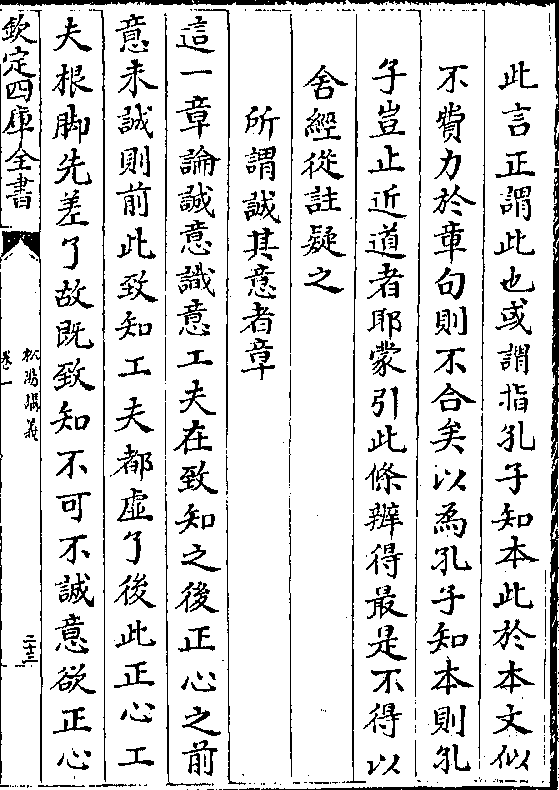 此言正謂此也或謂指孔子知本此於本文似
不費力於章句則不合矣以為孔子知本則孔
子豈止近道者耶蒙引此條辨得最是不得以
舍經從註疑之
所謂誠其意者章
這一章論誠意誠意工夫在致知之後正心之前
意未誠則前此致知工夫都虛了後此正心工
夫根脚先差了故既致知不可不誠意欲正心
欽定四庫全書
松陽講義
卷一
二十三